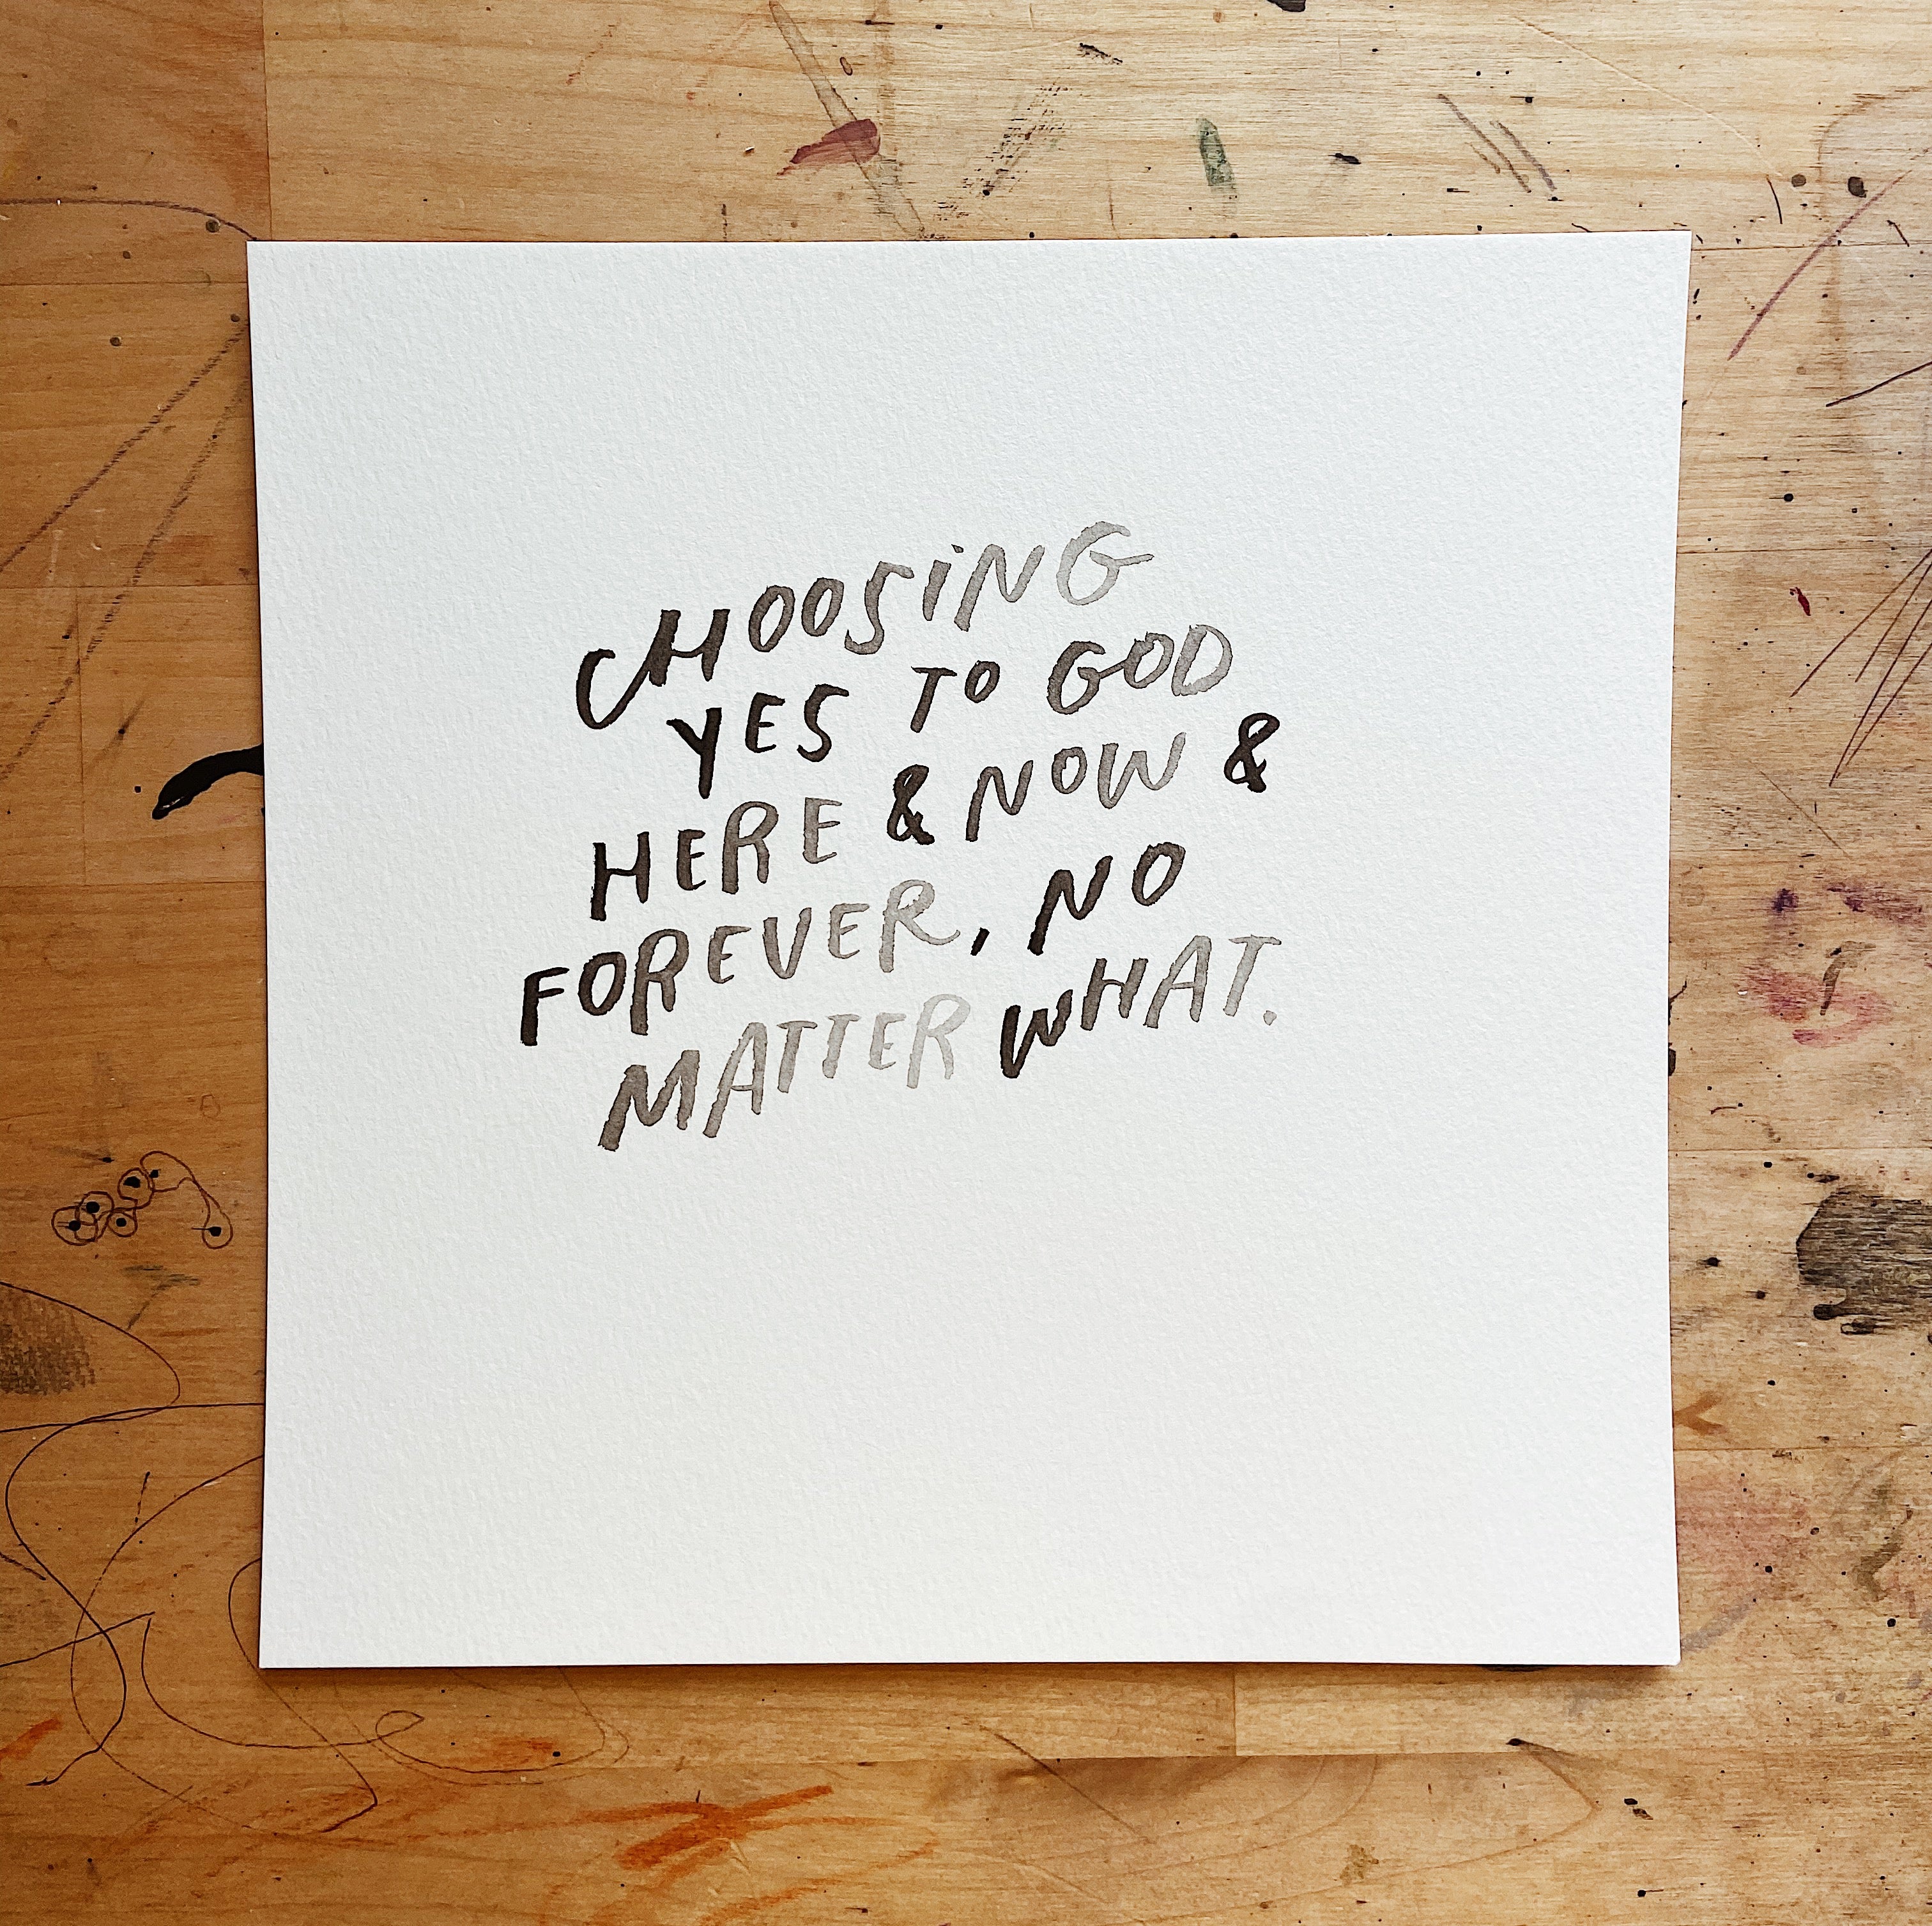 CHOOSING
YES TO GOD
HERE & NOW &
FOREVER, NO
MATTER WHAT.